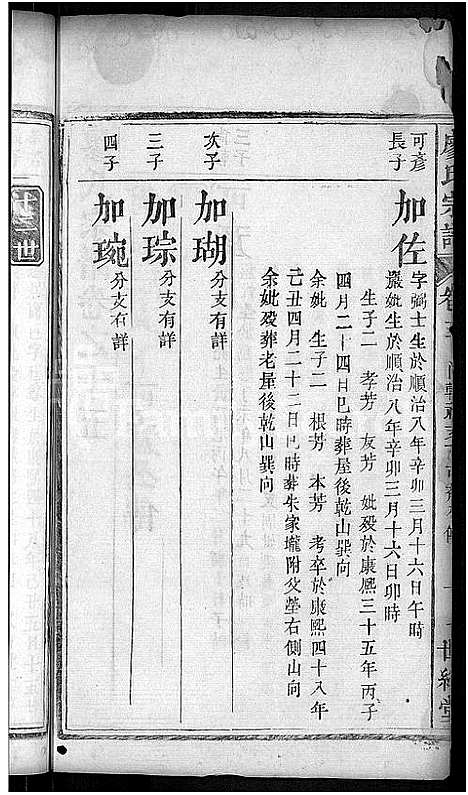 廖氏宗譜
卷
世綵堂
可彥
長子
加佐
字弼士生於順治八年辛卯三月十六日午時
嚴妣生於順治八年辛卯三月十六日卯時
生子二　孝芳　友芳　妣殁於康熙三十五年丙子
四月二十四日巳時葬屋後乾山巽向
余妣　生子二　根芳　本芳　考卒於康熙四十八年
己丑四月二十二日巳時葬朱家壠附父塋右側山向
余妣殁葬老屋後乾山巽向
次子
加瑚
分支有詳
三子
加琮
分支有詳
四子
加琬
分支有詳
廿三世